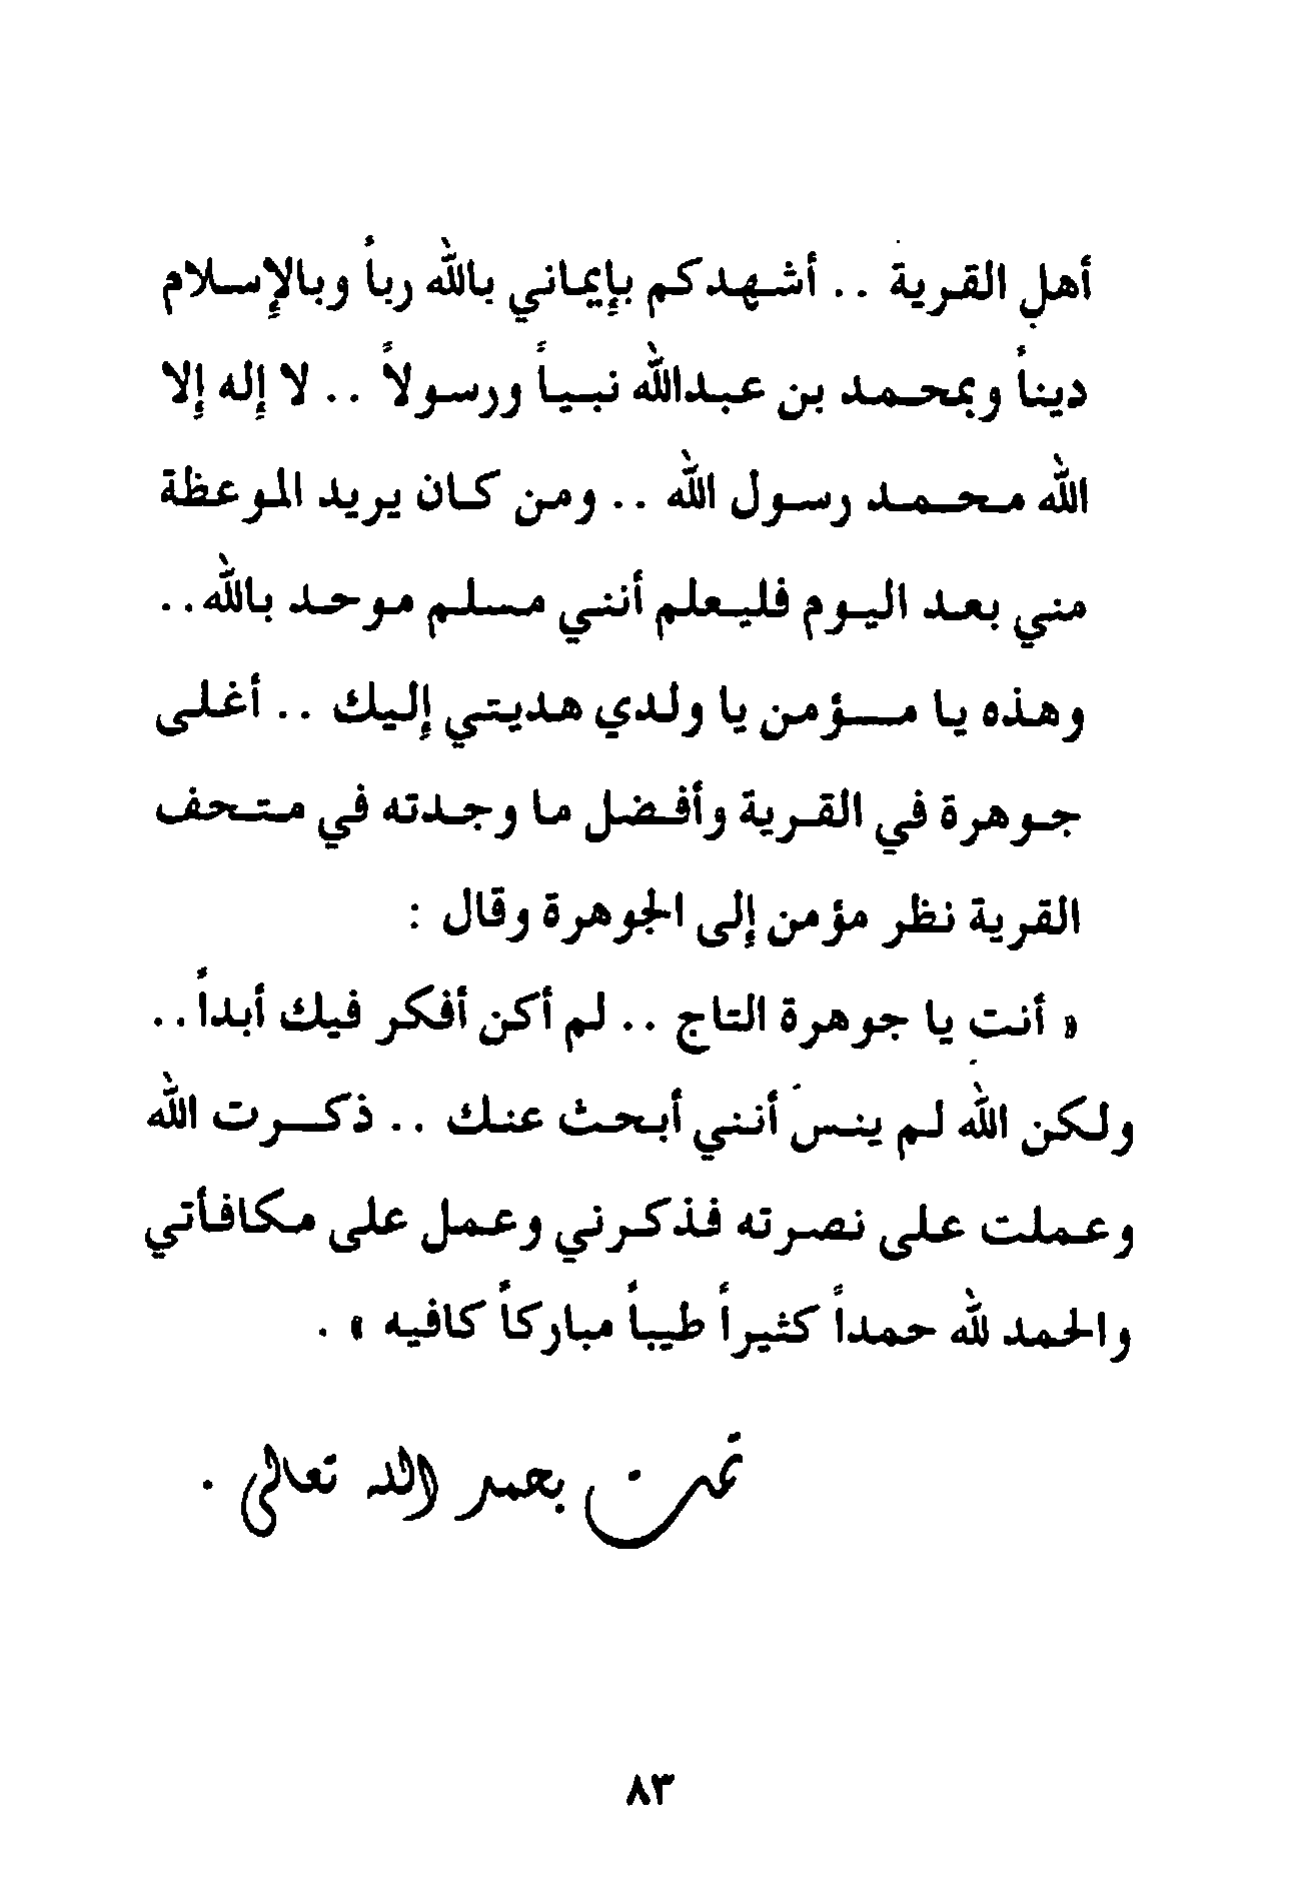 أهل القرية .. أشهدكم بإيماني بالله رباً وبالإسلام
ديناً وبمحمد بن عبدالله نبياً ورسولاً .. لا إله إلا
الله محمد رسول الله .. ومن كان يريد الموعظة
مني بعد اليوم فليعلم أنني مسلم موحد بالله ..
وهذه يا مؤمن يا ولدي هديتي إليك .. أغلى
جوهرة في القرية وأفضل ما وجدته في متحف
القرية نظر مؤمن إلى الجوهرة وقال :
« أنت يا جوهرة التاج .. لم أكن أفكر فيك أبداً ..
ولكن الله لم ينسَ أنني أبحث عنك .. ذكرت الله
وعملت على نصرته فذكرني وعمل على مكافأتي
والحمد لله حمداً كثيراً طيباً مباركاً كافيه » .
تمت بحمد الله تعالى .
٨٣